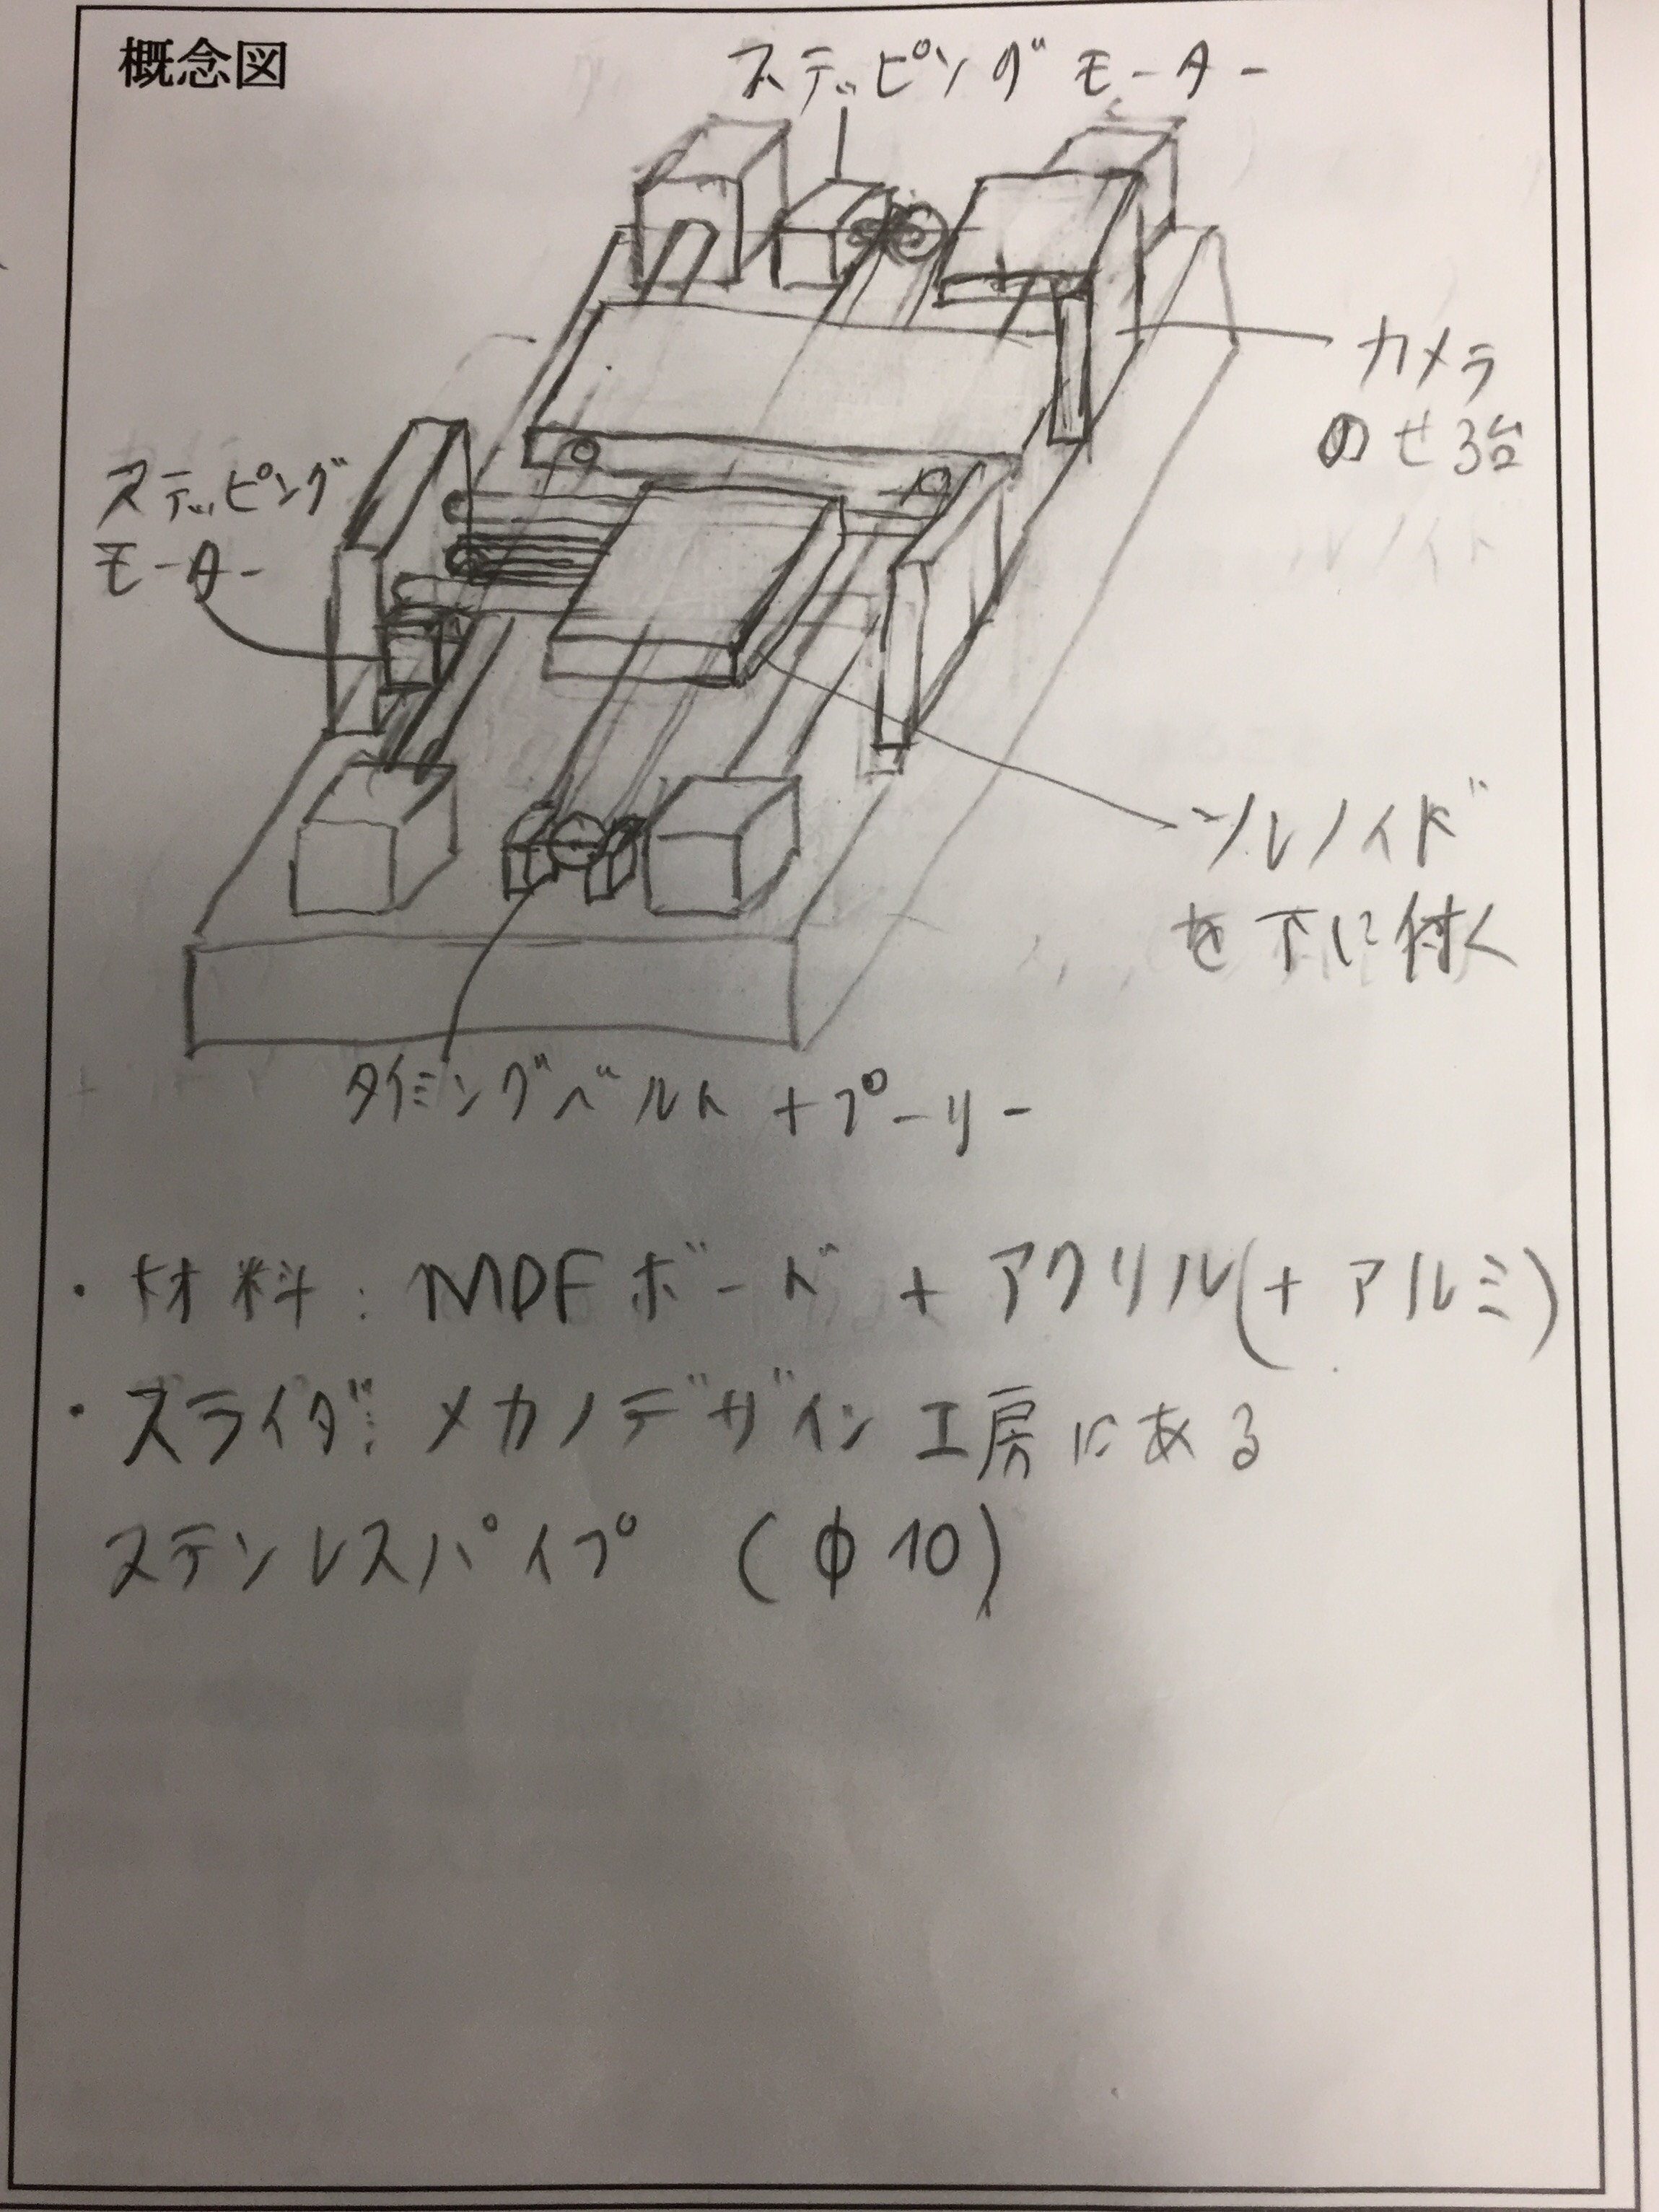 概念図
ステッピングモーター
カメラ
のせる台
ステッピング
モーター
ソレノイド
を下に付く
タイミングベルト+プーリー
・材料:MDFボード+アクリル(+アルミ)
・スライダ:メカノデザイン工房にある
ステンレスパイプ(φ10)